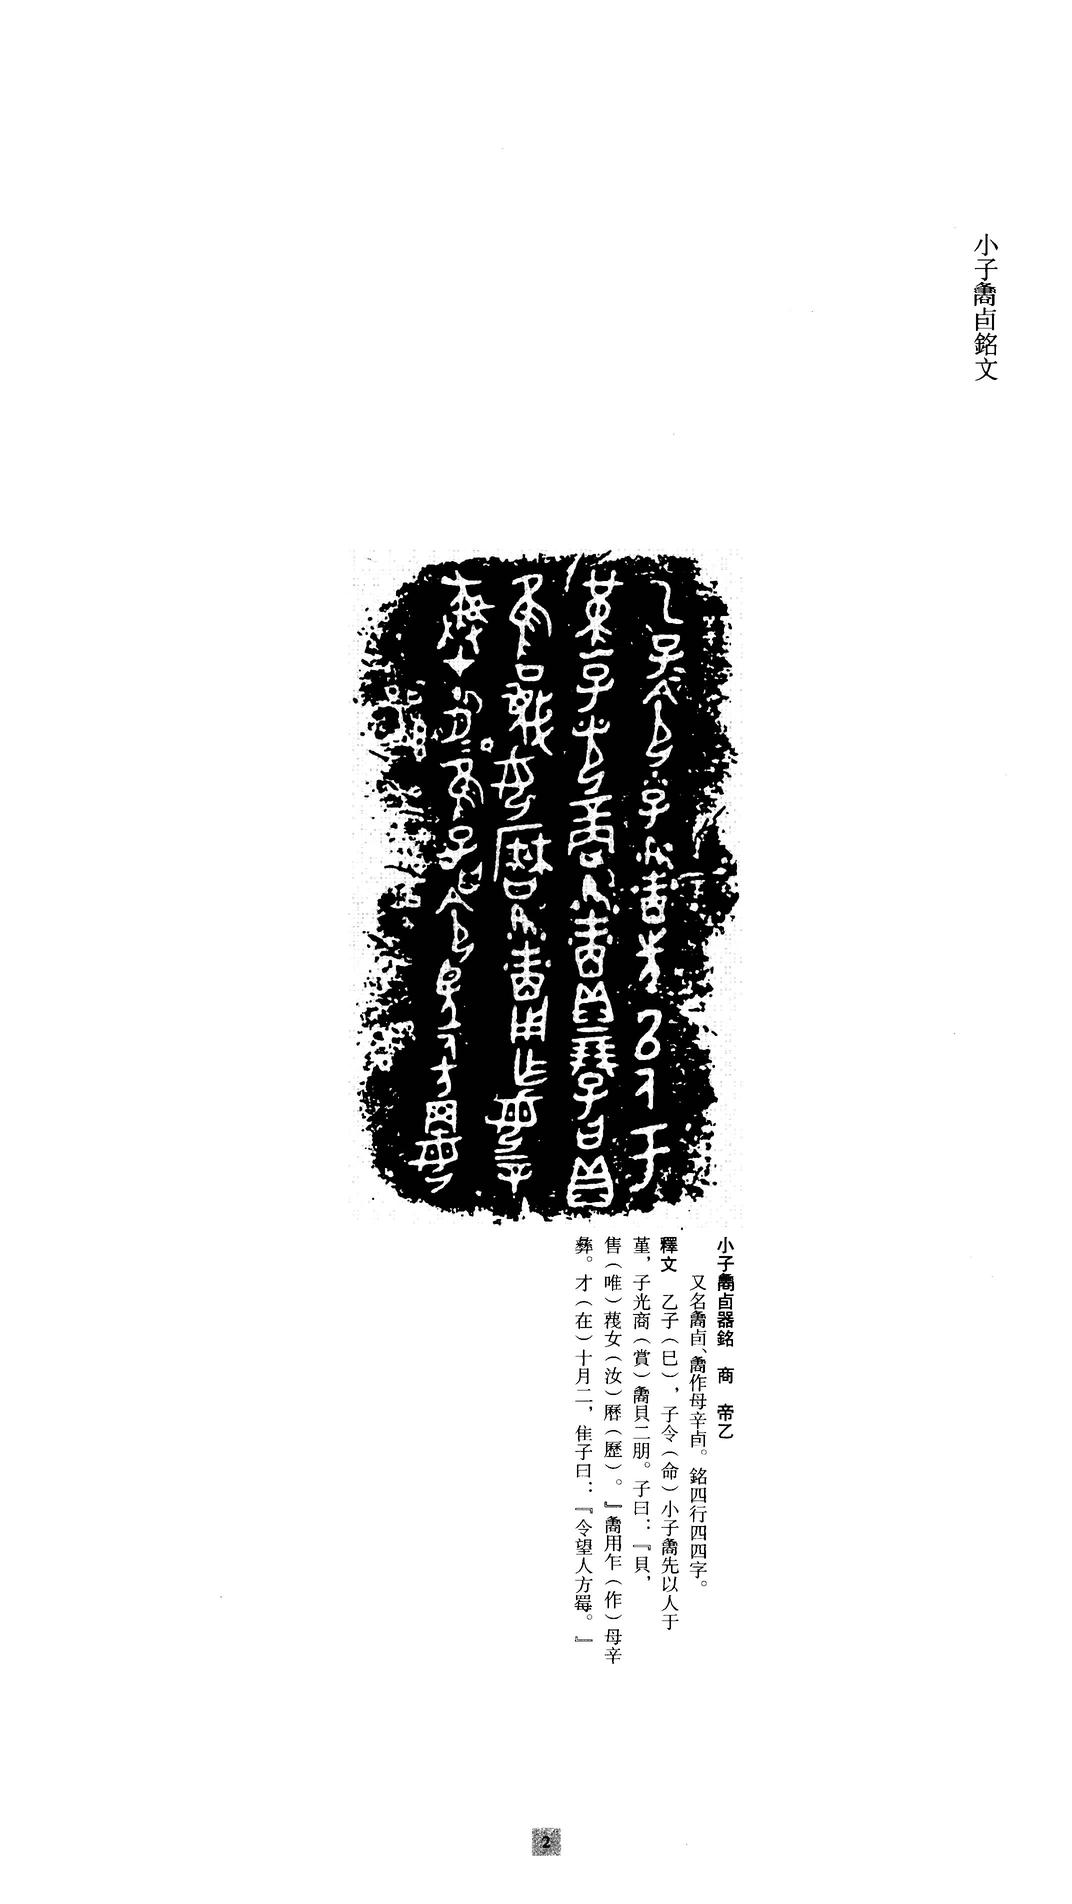 小子𠭯卣銘文
小子𠭯卣器銘　商　帝乙
又名𠭯卣、𠭯作母辛卣。銘四行四四字。
釋文　乙子（巳），子令（命）小子𠭯先以人于
堇，子光商（賞）𠭯貝二朋。子曰：『貝，
售（唯）蔑女（汝）曆（歷）。』𠭯用乍（作）母辛
彝。才（在）十月二，隹子曰：『令望人方霉。』
2